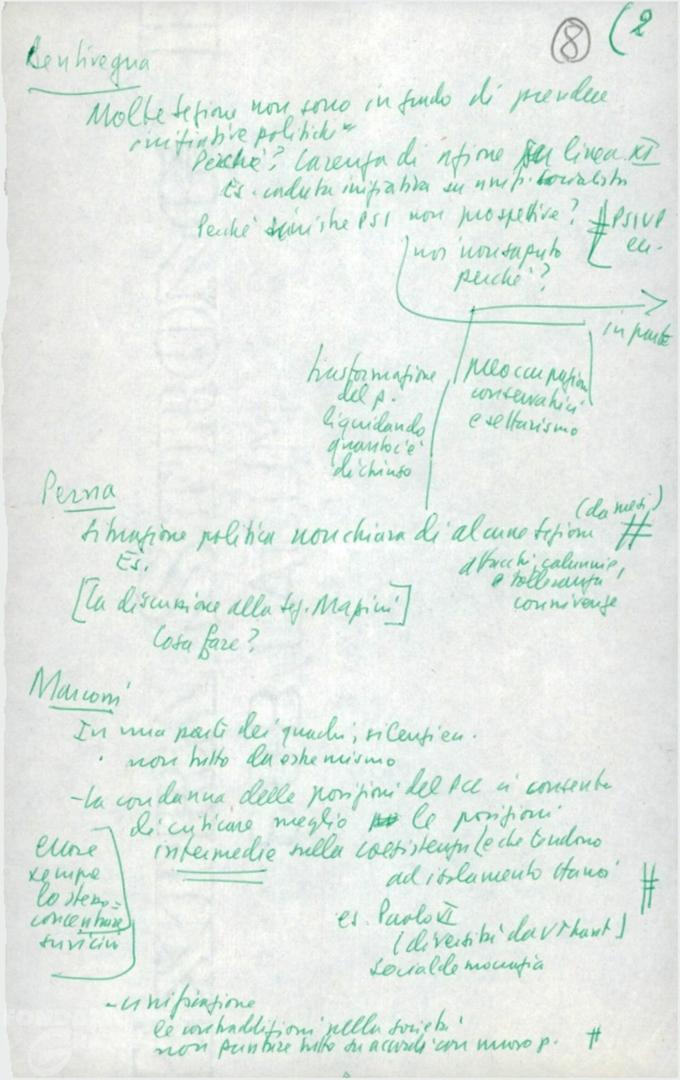 (2
8
Bentivegna
Molte sezioni non sono in grado di prendere
iniziative politiche
Perché? Carenza di azione su linea XI
Es. caduta iniziativa su unif. socialista
Perché sinistre PSI non prospettive? # PSIUP
ecc.
noi non saputo
perché?
in parte
trasformazione
del p.
liquidando
quanto c'è
di chiuso
preoccupazioni
conservatrici
e settarismo
Perna
(da mesi)
Situazione politica non chiara di alcune sezioni #
Es.
attacchi, calunnie,
e tolleranza
connivenze
[la discussione alla sez. Mazzini]
Cosa fare?
Marconi
In una parte dei quadri, silenzi ecc.
non tutto da estremismo
- la condanna delle posizioni del PCC ci consente
di criticare meglio le posizioni
intermedie sulla coesistenza (e che tendono
ad isolamento Hanoi #
errore
sempre
lo stesso =
concentrare
su vicini
es. Paolo VI
(diversità da U Thant)
socialdemocrazia
- unificazione
le contraddizioni nella società
non puntare tutto su accordi con nuovo p. #